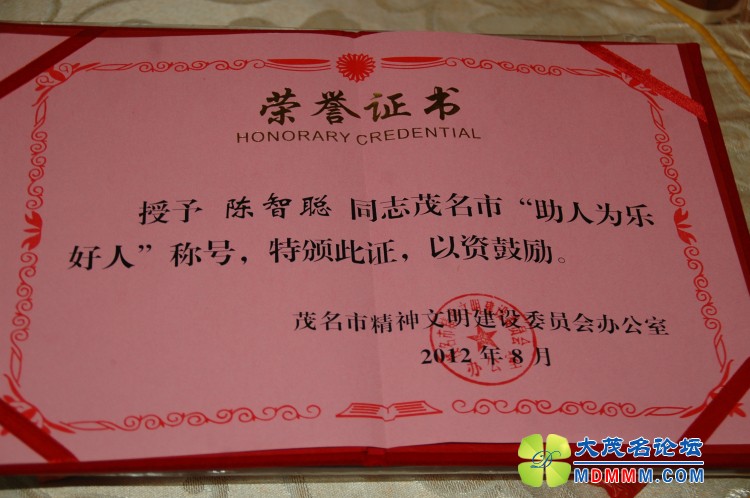 荣誉证书
HONORARY CREDENTIAL
授予 陈智聪 同志茂名市“助人为乐
好人”称号，特颁此证，以资鼓励。
茂名市精神文明建设委员会办公室
2012年8月
办公室
大茂名论坛
MDMMM.COM